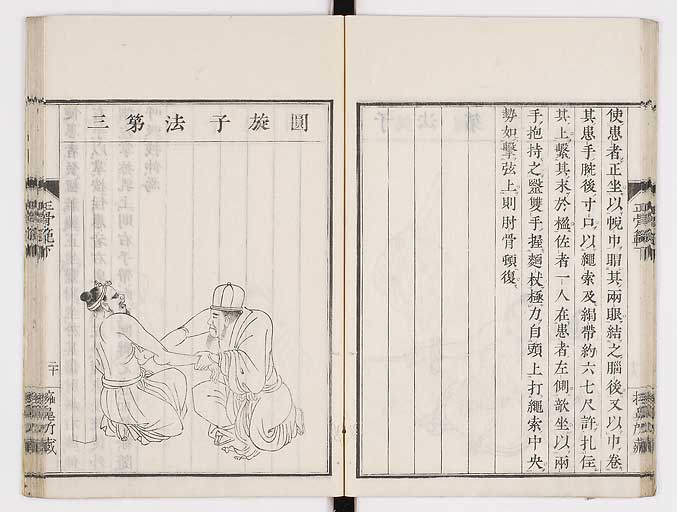 使患者正坐以帨巾罨其兩眼結之腦後又以巾卷
其患手腕後寸口以繩索及絹帶約六七尺許扎住
其上繫其末於楹佐者一人在患者左側歌坐以兩
手抱持之毉雙手握麵杖極力自頭上打繩索中央
勢如擊弦上則肘骨頓復
正骨範下
圓旋子法第三
正骨範下
二十